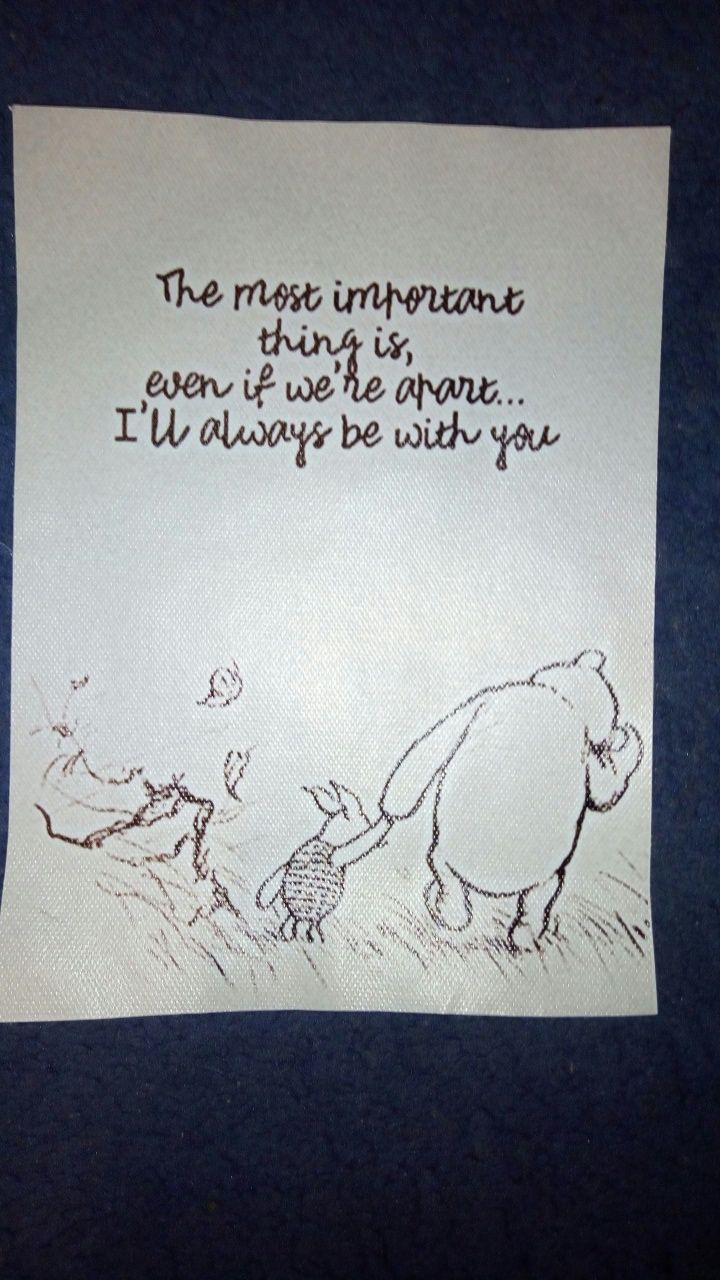 The most important
thing is,
even if we're apart...
I'll always be with you